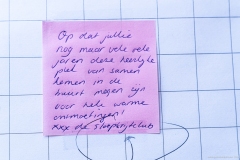 Op dat jullie
nog maar vele vele
jaren deze heerlijke
plek van samen
komen in de
buurt mogen zijn
voor hele warme
ontmoetingen!
xxx de